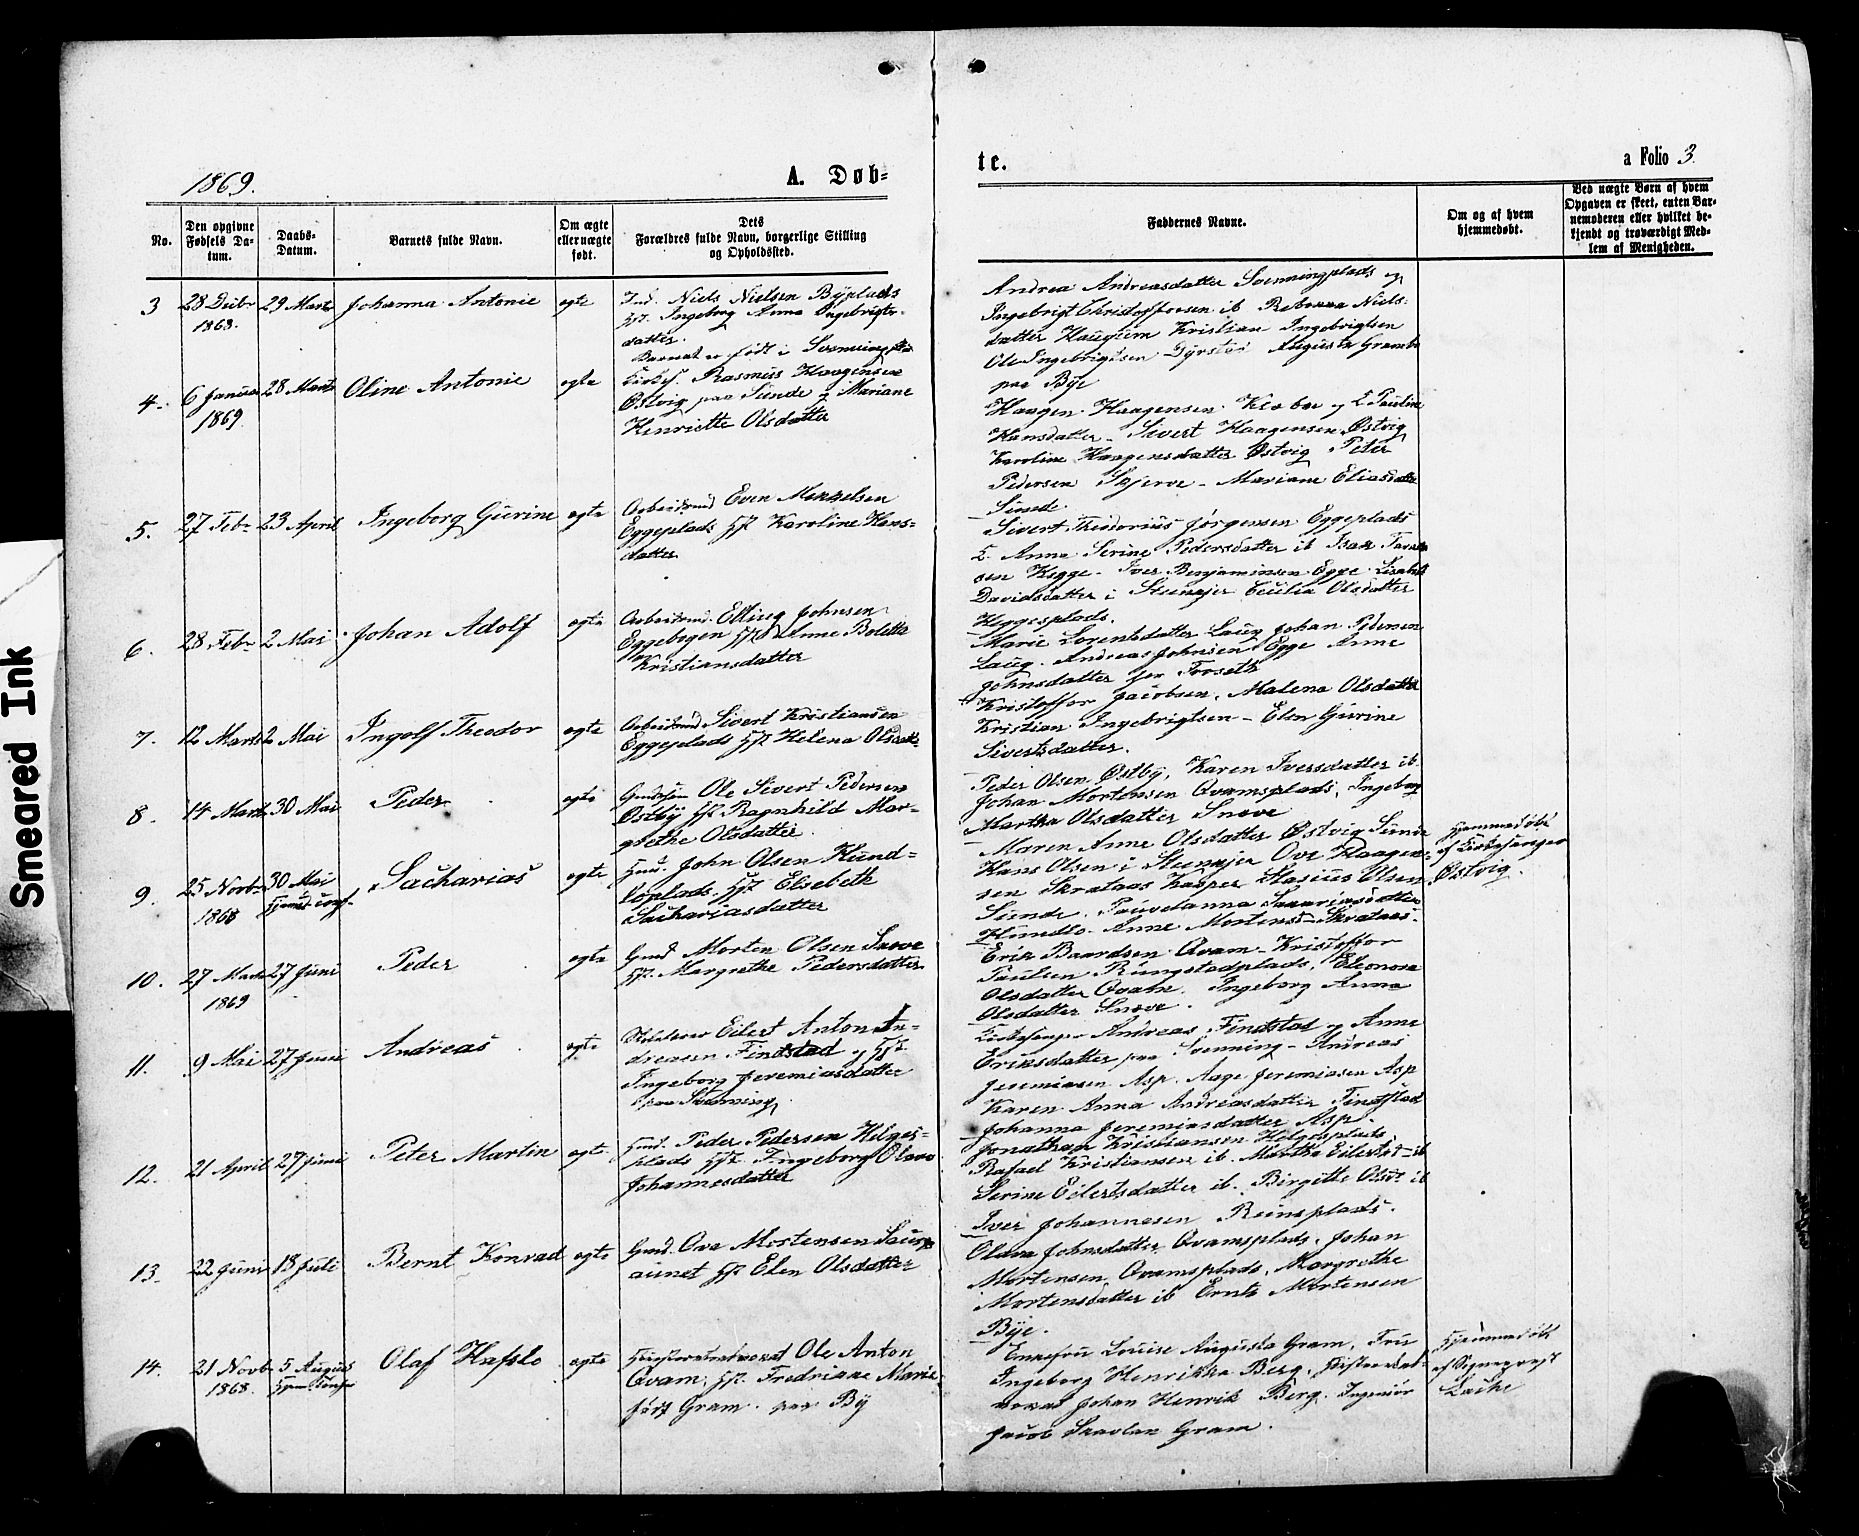 1869.
A. Døb=
te.
a Folio 3.
No.
Den opgivne
Fødsels Da-
tum.
Daabs-
Datum.
Barnets fulde Navn.
Om ægte
eller uægte
født.
Dets
Forældres fulde Navn, borgerlige Stilling
og Opholdssted.
Faddernes Navne.
Om og af hvem
hjemmedøbt.
Ved uægte Børn af hvem
Opgaven er skeet, enten Bar-
nemoderen eller hvilket be-
kjendt og troværdigt Med-
lem af Menigheden.
3
28 Decbr
1868.
29 Marts
Johanna Antonie
egte
Ind. Niels Nielsen Byplads
Hst. Ingeborg Anna Ingebrigts-
datter.
Barnet er født i
Andrea Andreasdatter Svenningplads og
Ingebrigt Christoffersen ib Rebekka Niels-
datter Haugum Kristian Ingebrigtsen
Ole Ingebrigtsen Augusta Gram
paa Bye
4.
6 Januar
1869
28 Marts
Oline Antonie
egte
Rasmus Haagensen
Østvig paa Sunde & Mariane
Henriette Olsdatter
Haagen Haagensen og E Pauline
Hansdatter - Sivert Haagensen Østvig
Karoline Haagensdatter Østvig Peter
Pedersen Skjerve - Mariane Eliasdatter
Sunde.
5.
27 Febr
23 April
Ingeborg Gurine
egte
Arbeidsmd Even Mikkelsen
Eggeplads Hst Karoline Hans-
datter
Sivert Theodorius Jørgensen Eggeplads
E. Anne Serine Pedersdatter ib Isak
sen Hegge - Iver Benjaminsen Egge
Davidsdatter i Steinkjer Cecilia Olsdatter
Heggesplads.
6.
28 Febr
2 Mai
Johan Adolf
egte
Arbeidsmd. Elling Johnsen
Eggebogen Hst Anne Boletta
Kristiansdatter
Marie Lorentsdatter Laug Johan Pedersen
Laug. Andreas Johnsen Egge Anne
Johnsdatter
7.
12 Marts
2 Mai
Ingolf Theodor
egte
Arbeidsmd Sivert Kristiansen
Eggeplads Hst Helena Olsdatter
Kristoffor Jacobsen. Malena Olsdatter
Kristian Ingebrigtsen - Elen Gurine
Sivertsdatter.
8.
14 Marts
30 Mai
Peder
egte
Ole Sivert Pedersen
Østby Hst Ragnhild Mar-
grethe Olsdatter.
Peder Olsen Østby, Karen Iversdatter ib.
Johan Mortensen Qvamsplads, Ingeborg
Martha Olsdatter Snøve
9.
25 Novbr
1868
30 Mai
Sacharias
egte
Husmd. John Olsen Hund-
loplads. Hst Elsebeth
Sachariasdatter
Maren Anne Olsdatter Østvig Sunde
Hans Olsen i Steinkjer Ove Haagen-
sen Skrataas Kasper Olsen
Sunde. Anne Mortensd-Skrataas.
Hjemmedøbt
af Kirkesanger
Østvig.
10.
27 Marts
1869
27 Juni
Peder
egte
Gmd Morten Olsen Snøve
Hst. Margrethe Pedersdatter
Erik Baardsen Qvam - Kristoffor
Paulsen Rungstadplads, Eleonora
Olsdatter Qvam. Ingeborg Anna
Olsdatter Snøve.
11.
9 Mai
27 Juni
Andreas
egte
Eilert Anton An-
dreasen Findstad og Hst.
Ingeborg Jeremiasdatter
paa Svenning
Kirkesanger Andreas Findstad og Anne
Eriksdatter paa Svenning - Andreas
Jeremiasen Asp. Aage Jeremiasen Asp
Karen Anna Andreasdatter Findstad
Johanna Jeremiasdatter Asp.
12.
21 April
27 Juni
Peter Martin
egte
Husmd. Peder Pedersen Helges-
plads Hst Ingeborg Olava
Johannesdatter
Jonathan Kristiansen Helgesplads
Rafael Kristiansen ib. Martha Eilertsd-ib
Serine Eilertsdatter ib. Birgitte Olsdr ib
Iver Johannesen Reinsplads.
13.
22 Juni
18 Juli
Bernt Konrad
egte
Gmd. Ove Mortensen
aunet Hst Elen Olsdatter
Olava Johnsdatter Qvamsplads, Johan
Mortensen Qvamsplads, Margrethe
Mortensdatter ib Mortensen
Bye.
14.
21 Novb
1868.
5 August
Olaf Hafslo
egte
Ole Anton
Qvam, Hst. Fredrikke Marie
født Gram. paa By
Enkefru Louise Augusta Gram, Fru
Ingeborg Henrikka Berg,
Johan Henrik Berg. Ingeniør
Jacob Skavlan Gram.
Hjemmedøbt
af Sognepræst
Smeared Ink